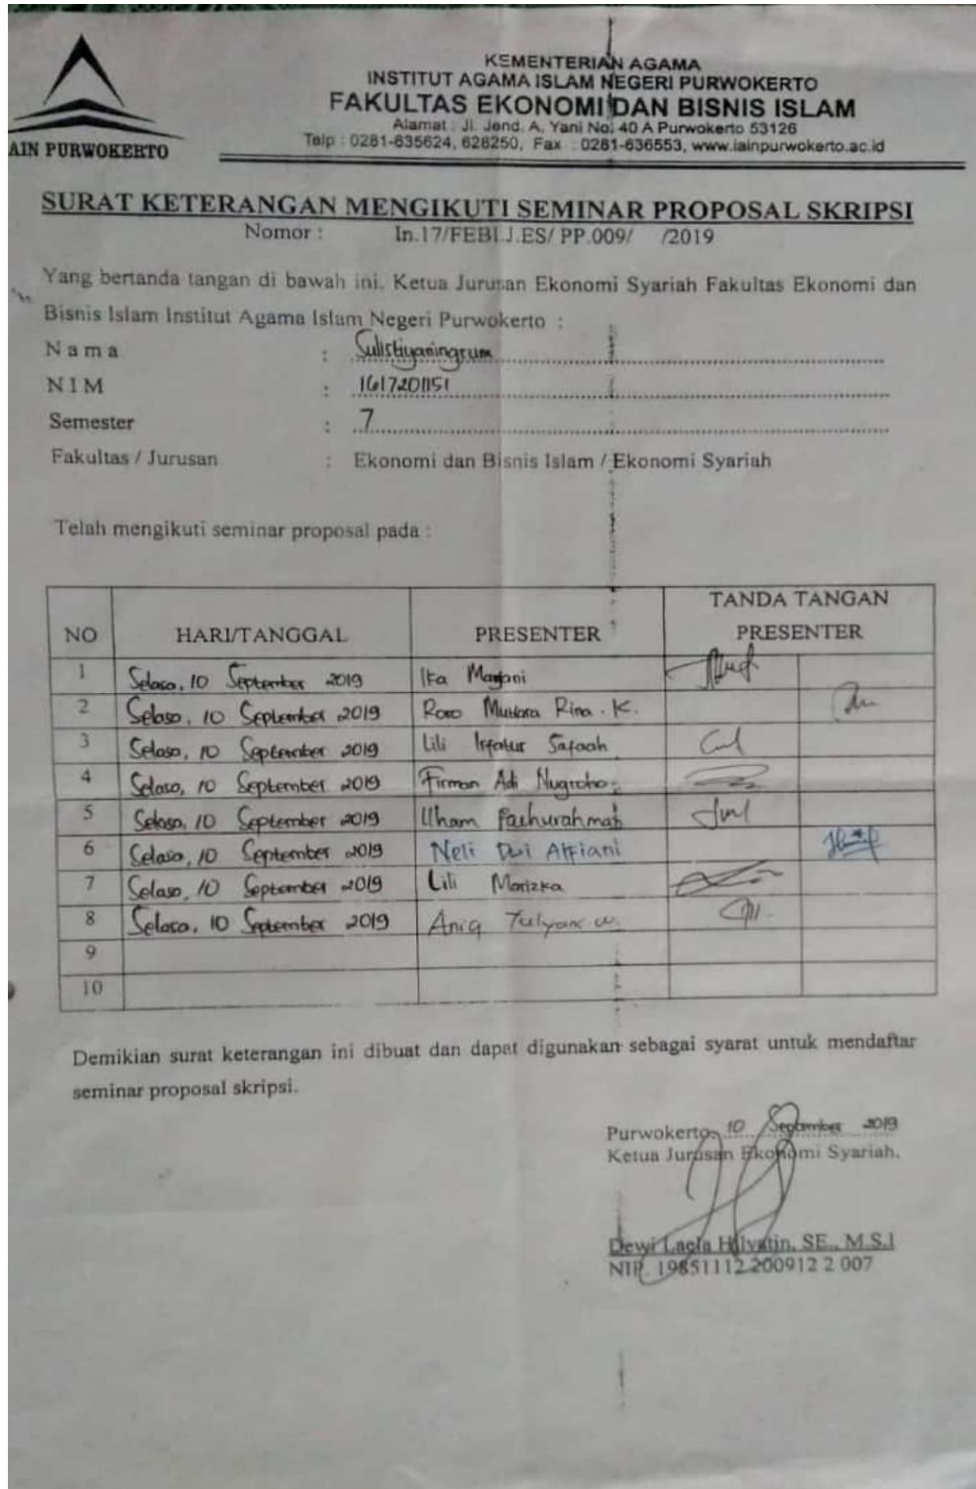 AIN PURWOKERTO
KEMENTERIAN AGAMA
INSTITUT AGAMA ISLAM NEGERI PURWOKERTO
FAKULTAS EKONOMI DAN BISNIS ISLAM
Alamat : Jl. Jend. A. Yani No. 40 A Purwokerto 53126
Telp : 0281-635624, 628250, Fax : 0281-636553, www.iainpurwokerto.ac.id
SURAT KETERANGAN MENGIKUTI SEMINAR PROPOSAL SKRIPSI
Nomor : In.17/FEBI.J.ES/ PP.009/ /2019
Yang bertanda tangan di bawah ini, Ketua Jurusan Ekonomi Syariah Fakultas Ekonomi dan
Bisnis Islam Institut Agama Islam Negeri Purwokerto :
Nama : Sulistiyaningrum
NIM : 1617201151
Semester : 7
Fakultas / Jurusan : Ekonomi dan Bisnis Islam / Ekonomi Syariah
Telah mengikuti seminar proposal pada :
NO HARI/TANGGAL PRESENTER TANDA TANGAN PRESENTER
1 Selasa, 10 September 2019 Ika
2 Selasa, 10 September 2019 Roro Mutiara Rina . K.
3 Selasa, 10 September 2019 Lili Irfatur Safaah
4 Selasa, 10 September 2019 Firman Adi Nugroho
5 Selasa, 10 September 2019 Ilham Fachurahmat
6 Selasa, 10 September 2019 Neli Dwi Alfiani
7 Selasa, 10 September 2019 Lili Marizka
8 Selasa, 10 September 2019 Aniq
9
10
Demikian surat keterangan ini dibuat dan dapat digunakan sebagai syarat untuk mendaftar
seminar proposal skripsi.
Purwokerto, 10 September 2019
Ketua Jurusan Ekonomi Syariah,
Dewi Laela Hilyatin, SE., M.S.I
NIP. 19851112 200912 2 007